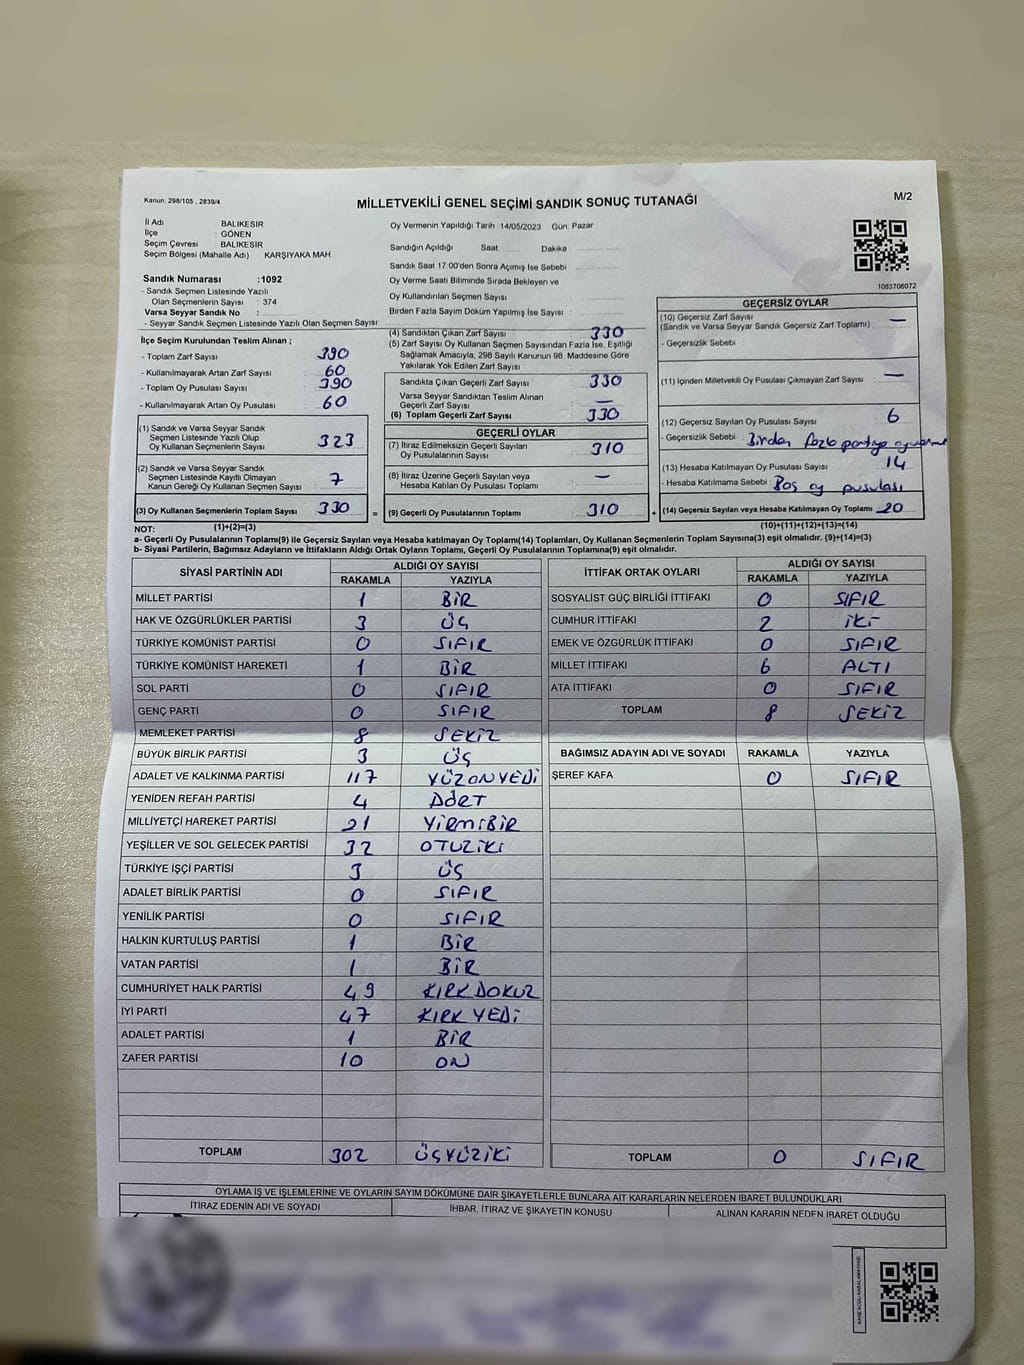 Kanun, 298/105 , 2839/4
MİLLETVEKİLİ GENEL SEÇİMİ SANDIK SONUÇ TUTANAĞI
M/2
İl Adı : BALIKESİR
İlçe : GÖNEN
Seçim Çevresi : BALIKESİR
Seçim Bölgesi (Mahalle Adı) KARŞIYAKA MAH.
Sandık Numarası :1092
- Sandık Seçmen Listesinde Yazılı
Olan Seçmenlerin Sayısı : 374
Varsa Seyyar Sandık No :
- Seyyar Sandık Seçmen Listesinde Yazılı Olan Seçmen Sayısı:
Oy Vermenin Yapıldığı Tarih :14/05/2023 Gün: Pazar
Sandığın Açıldığı Saat Dakika
Sandık Saat 17:00'den Sonra Açımış İse Sebebi
Oy Verme Saati Bitiminde Sırada Bekleyen ve
Oy Kullandırılan Seçmen Sayısı
Birden Fazla Sayım Döküm Yapılmış İse Sayısı
1083706072
İlçe Seçim Kurulundan Teslim Alınan ;
- Toplam Zarf Sayısı 390
- Kullanılmayarak Artan Zarf Sayısı 60
- Toplam Oy Pusulası Sayısı 390
- Kullanılmayarak Artan Oy Pusulası 60
(1) Sandık ve Varsa Seyyar Sandık
Seçmen Listesinde Yazılı Olup
Oy Kullanan Seçmenlerin Sayısı 323
(2) Sandık ve Varsa Seyyar Sandık
Seçmen Listesinde Kayıtlı Olmayan
Kanun Gereği Oy Kullanan Seçmen Sayısı 7
(3) Oy Kullanan Seçmenlerin Toplam Sayısı 330 =
(4) Sandıktan Çıkan Zarf Sayısı 330
(5) Zarf Sayısı Oy Kullanan Seçmen Sayısından Fazla İse, Eşitliği
Sağlamak Amacıyla; 298 Sayılı Kanunun 98. Maddesine Göre
Yakılarak Yok Edilen Zarf Sayısı
Sandıkta Çıkan Geçerli Zarf Sayısı 330
Varsa Seyyar Sandıktan Teslim Alınan
Geçerli Zarf Sayısı —
(6) Toplam Geçerli Zarf Sayısı 330
GEÇERLİ OYLAR
(7) İtiraz Edilmeksizin Geçerli Sayılan
Oy Pusulalarının Sayısı 310
(8) İtiraz Üzerine Geçerli Sayılan veya
Hesaba Katılan Oy Pusulası Toplamı —
(9) Geçerli Oy Pusulalarının Toplamı 310 +
GEÇERSİZ OYLAR
(10) Geçersiz Zarf Sayısı —
(Sandık ve Varsa Seyyar Sandık Geçersiz Zarf Toplamı)
- Geçersizlik Sebebi :
(11) İçinden Milletvekili Oy Pusulası Çıkmayan Zarf Sayısı —
(12) Geçersiz Sayılan Oy Pusulası Sayısı 6
- Geçersizlik Sebebi Birden fazla partiye
(13) Hesaba Katılmayan Oy Pusulası Sayısı 14
- Hesaba Katılmama Sebebi Boş oy pusulası
(14) Geçersiz Sayılan veya Hesaba Katılmayan Oy Toplamı 20
NOT: (1)+(2)=(3) (10)+(11)+(12)+(13)=(14)
a- Geçerli Oy Pusulalarının Toplamı(9) ile Geçersiz Sayılan veya Hesaba katılmayan Oy Toplamı(14) Toplamları, Oy Kullanan Seçmenlerin Toplam Sayısına(3) eşit olmalıdır. (9)+(14)=(3)
b- Siyasi Partilerin, Bağımsız Adayların ve İttifakların Aldığı Ortak Oyların Toplamı, Geçerli Oy Pusulalarının Toplamına(9) eşit olmalıdır.
SİYASİ PARTİNİN ADI ALDIĞI OY SAYISI
RAKAMLA YAZIYLA
MİLLET PARTİSİ 1 BİR
HAK VE ÖZGÜRLÜKLER PARTİSİ 3 ÜÇ
TÜRKİYE KOMÜNİST PARTİSİ 0 SIFIR
TÜRKİYE KOMÜNİST HAREKETİ 1 BİR
SOL PARTİ 0 SIFIR
GENÇ PARTİ 0 SIFIR
MEMLEKET PARTİSİ 8 SEKİZ
BÜYÜK BİRLİK PARTİSİ 3 ÜÇ
ADALET VE KALKINMA PARTİSİ 117 YÜZONYEDİ
YENİDEN REFAH PARTİSİ 4 DÖRT
MİLLİYETÇİ HAREKET PARTİSİ 21 YİRMİBİR
YEŞİLLER VE SOL GELECEK PARTİSİ 32 OTUZİKİ
TÜRKİYE İŞÇİ PARTİSİ 3 ÜÇ
ADALET BİRLİK PARTİSİ 0 SIFIR
YENİLİK PARTİSİ 0 SIFIR
HALKIN KURTULUŞ PARTİSİ 1 BİR
VATAN PARTİSİ 1 BİR
CUMHURİYET HALK PARTİSİ 49 KIRK DOKUZ
İYİ PARTİ 47 KIRK YEDİ
ADALET PARTİSİ 1 BİR
ZAFER PARTİSİ 10 ON
TOPLAM 302 ÜÇYÜZİKİ
İTTİFAK ORTAK OYLARI ALDIĞI OY SAYISI
RAKAMLA YAZIYLA
SOSYALİST GÜÇ BİRLİĞİ İTTİFAKI 0 SIFIR
CUMHUR İTTİFAKI 2 İKİ
EMEK VE ÖZGÜRLÜK İTTİFAKI 0 SIFIR
MİLLET İTTİFAKI 6 ALTI
ATA İTTİFAKI 0 SIFIR
TOPLAM 8 SEKİZ
BAĞIMSIZ ADAYIN ADI VE SOYADI RAKAMLA YAZIYLA
ŞEREF KAFA 0 SIFIR
TOPLAM 0 SIFIR
OYLAMA İŞ VE İŞLEMLERİNE VE OYLARIN SAYIM DÖKÜMÜNE DAİR ŞİKAYETLERLE BUNLARA AİT KARARLARIN NELERDEN İBARET BULUNDUKLARI
İTİRAZ EDENİN ADI VE SOYADI İHBAR, İTİRAZ VE ŞİKAYETİN KONUSU ALINAN KARARIN NEDEN İBARET OLDUĞU